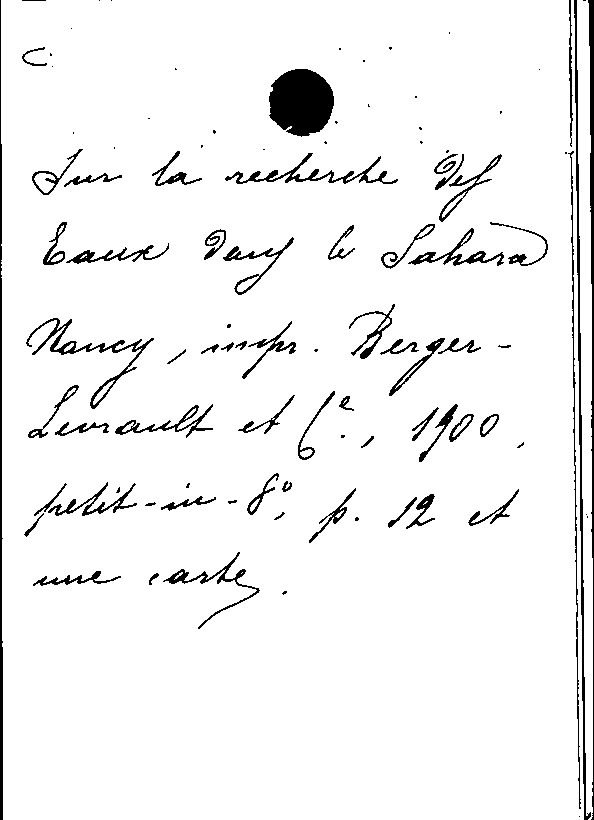 C.
Sur la recherche des
Eaux dans le Sahara
Nancy, impr. Berger-
Levrault et Cᵉ., 1900,
petit-in-8º, p. 12 et
une carte.